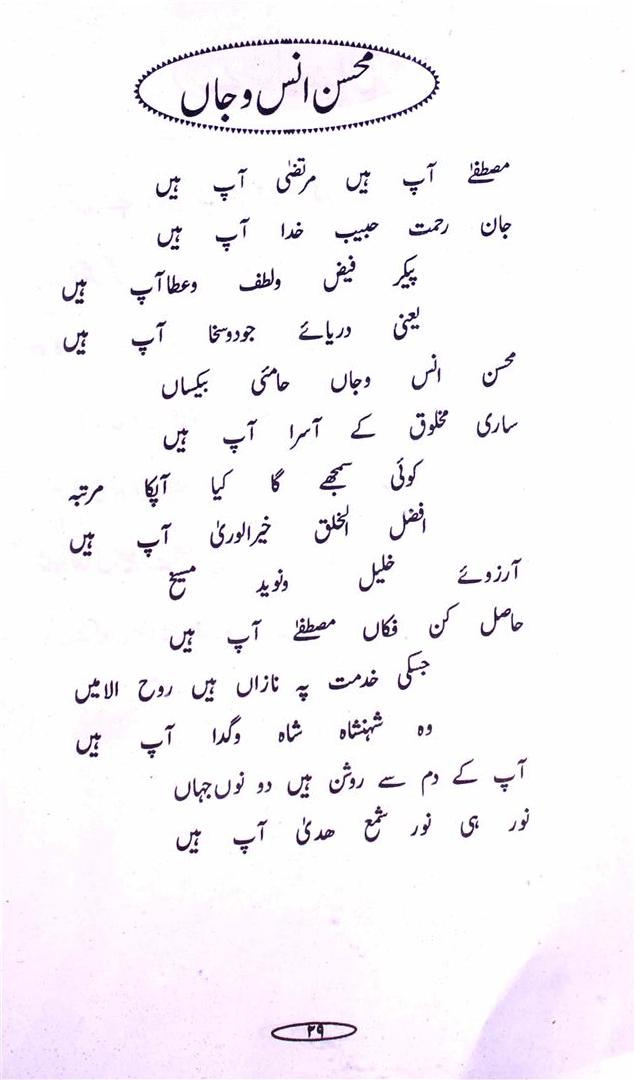 محسن انس و جاں
مصطفےٰ آپ ہیں مرتضٰی آپ ہیں
جان رحمت حبیب خدا آپ ہیں
پیکر فیض ولطف وعطا آپ ہیں
یعنی دریائے جودوسخا آپ ہیں
محسن انس وجاں حامئی بیکساں
ساری مخلوق کے آسرا آپ ہیں
کوئی سمجھے گا کیا آپکا مرتبہ
افضل الخلق خیرالوریٰ آپ ہیں
آرزوئے خلیل ونوید مسیح
حاصل کن فکاں مصطفےٰ آپ ہیں
جسکی خدمت پہ نازاں ہیں روح الامیں
وہ شہنشاہ شاہ وگدا آپ ہیں
آپ کے دم سے روشن ہیں دو نوں جہاں
نور ہی نور شمع ھدیٰ آپ ہیں
۲۹